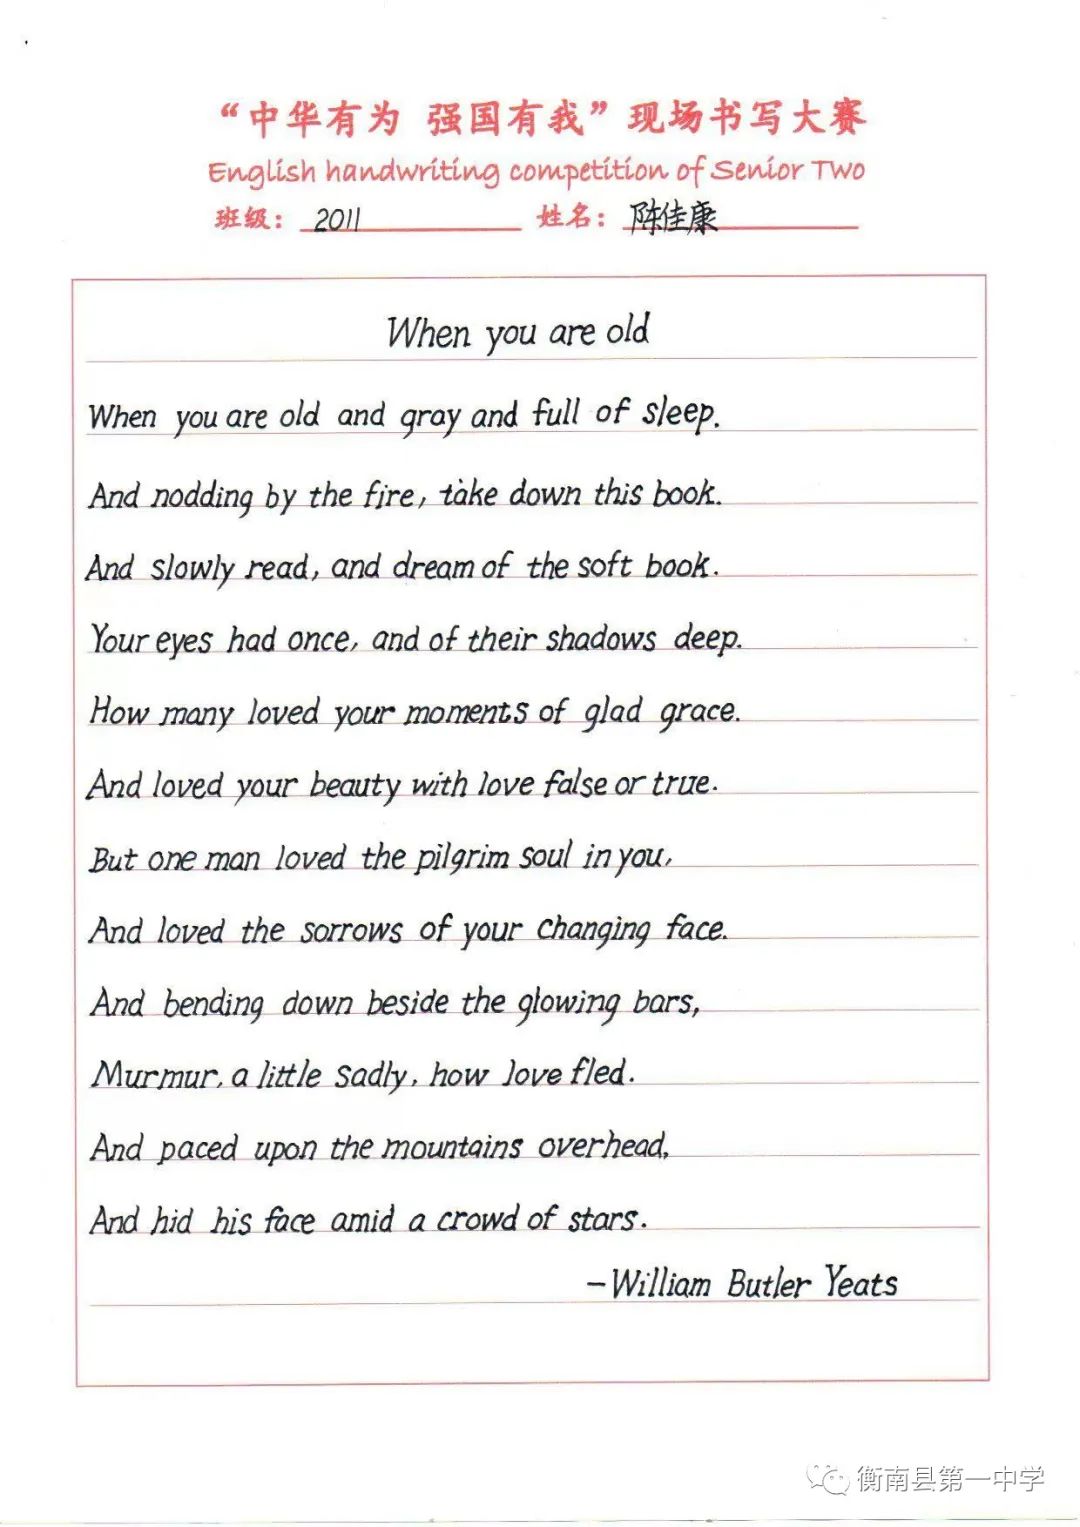 “中华有为 强国有我”现场书写大赛
English handwriting competition of Senior Two
班级： 2011 姓名： 陈佳康
When you are old
When you are old and gray and full of sleep.
And nodding by the fire, take down this book.
And slowly read, and dream of the soft book.
Your eyes had once, and of their shadows deep.
How many loved your moments of glad grace.
And loved your beauty with love false or true.
But one man loved the pilgrim soul in you,
And loved the sorrows of your changing face.
And bending down beside the glowing bars,
Murmur, a little sadly, how love fled.
And paced upon the mountains overhead,
And hid his face amid a crowd of stars.
–William Butler Yeats
衡南县第一中学